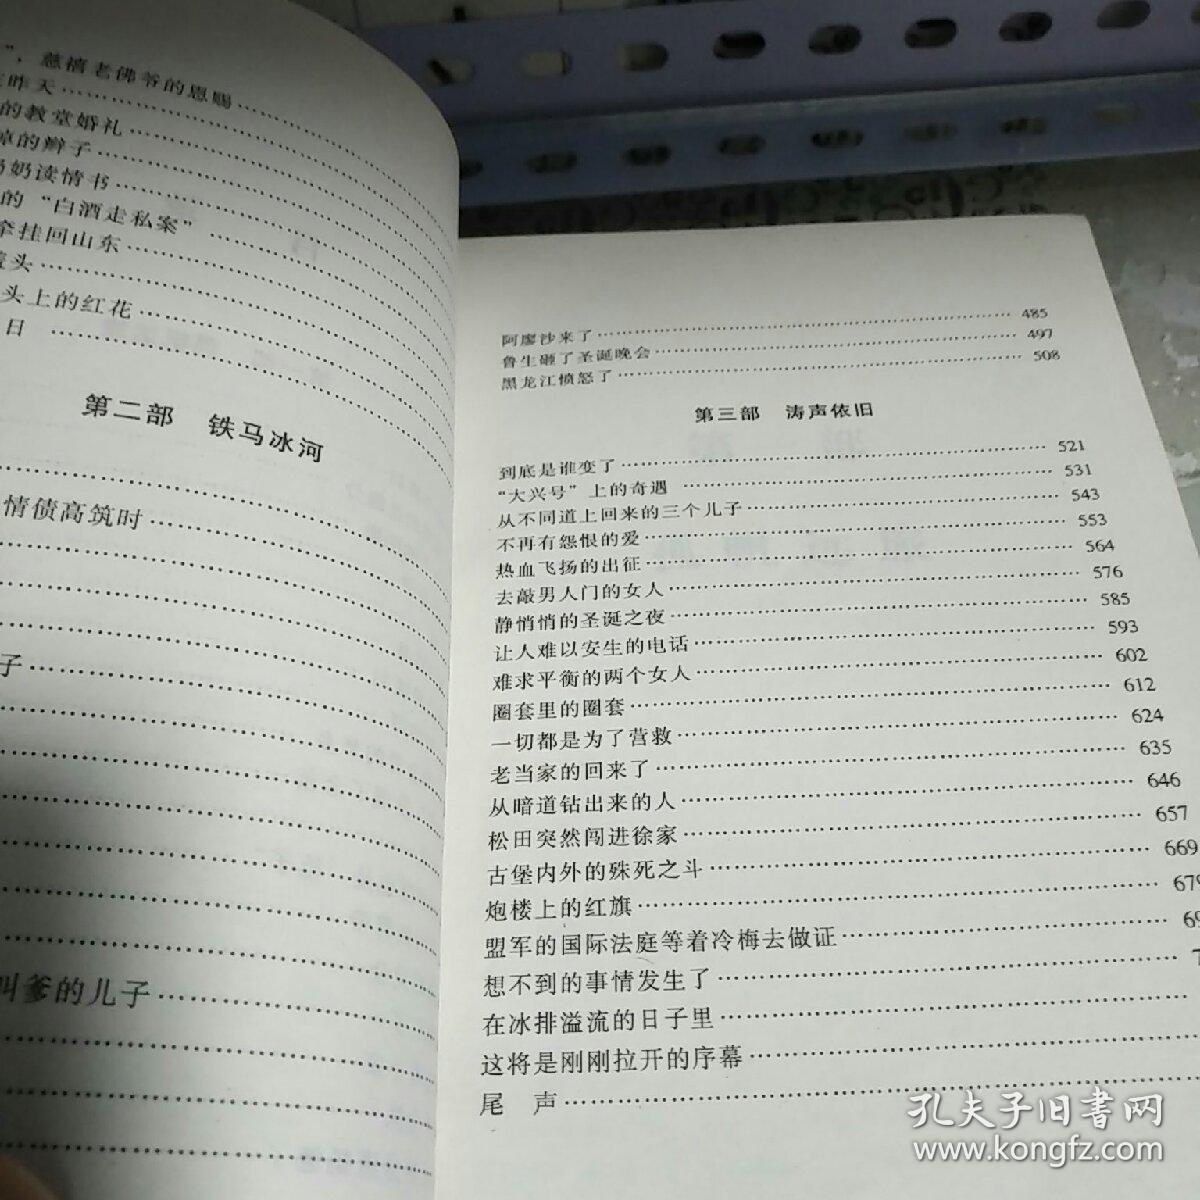 ”，慈禧老佛爷的恩赐
昨天
的教堂婚礼
的辫子
奶奶读情书
的“白酒走私案”
牵挂回山东
头
头上的红花
日
第二部 铁马冰河
情债高筑时
子
叫爹的儿子
阿廖沙来了 485
鲁生砸了圣诞晚会 497
黑龙江愤怒了 508
第三部 涛声依旧
到底是谁变了 521
“大兴号”上的奇遇 531
从不同道上回来的三个儿子 543
不再有怨恨的爱 553
热血飞扬的出征 564
去敲男人门的女人 576
静悄悄的圣诞之夜 585
让人难以安生的电话 593
难求平衡的两个女人 602
圈套里的圈套 612
一切都是为了营救 624
老当家的回来了 635
从暗道钻出来的人 646
松田突然闯进徐家 657
古堡内外的殊死之斗 669
炮楼上的红旗 679
盟军的国际法庭等着冷梅去做证 69
想不到的事情发生了 7
在冰排溢流的日子里
这将是刚刚拉开的序幕
尾 声
孔夫子旧书网
www.kongfz.com